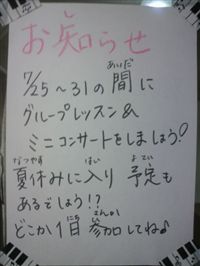 お知らせ
7/25～31の間に
あいだ
グループレッスン&
ミニコンサートをしましょう!
なつやす はい よてい
夏休みに入り 予定も
あるでしょう!?
にち さんか
どこか1日 参加してね♪